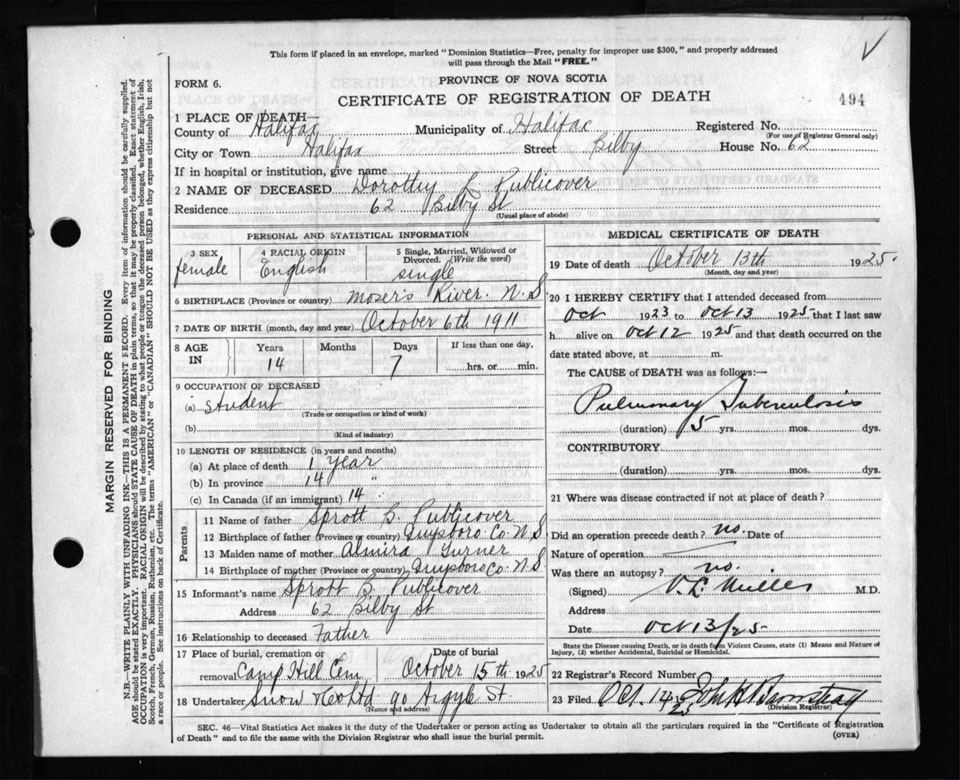 This form if placed in an envelope, marked "Dominion Statistics—Free, penalty for improper use $300," and properly addressed
will pass through the Mail "FREE."
FORM 6.
PROVINCE OF NOVA SCOTIA
CERTIFICATE OF REGISTRATION OF DEATH
494
1 PLACE OF DEATH—
County of Halifax Municipality of Halifax Registered No.
(For use of Registrar General only)
City or Town Halifax Street Bilby House No. 62
If in hospital or institution, give name
2 NAME OF DECEASED Dorothy L. Publicover
Residence 62 Bilby St
(Usual place of abode)
PERSONAL AND STATISTICAL INFORMATION
3 SEX 4 RACIAL ORIGIN 5 Single, Married, Widowed or
Divorced. (Write the word)
female English single
6 BIRTHPLACE (Province or country) Moser's River. N.S.
7 DATE OF BIRTH (month, day and year) October 6th 1911
8 AGE IN Years Months Days If less than one day,
14 7 hrs. or min.
9 OCCUPATION OF DECEASED
(a) Student
(Trade or occupation or kind of work)
(b)
(Kind of industry)
10 LENGTH OF RESIDENCE (in years and months)
(a) At place of death 1 year
(b) In province 14 "
(c) In Canada (if an immigrant) 14
Parents
11 Name of father Sprott B. Publicover
12 Birthplace of father (Province or country) Guysboro Co. N.S.
13 Maiden name of mother Almira Turner
14 Birthplace of mother (Province or country) Guysboro Co. N.S.
15 Informant's name Sprott B. Publicover
Address 62 Bilby St
16 Relationship to deceased Father
17 Place of burial, cremation or Date of burial
removal Camp Hill Cem. October 15th 1925
18 Undertaker Snow & Co Ltd 90 Argyle St.
(Name and address)
MEDICAL CERTIFICATE OF DEATH
19 Date of death October 13th 1925
(Month, day and year)
20 I HEREBY CERTIFY that I attended deceased from
Oct 1923 to Oct 13 1925 that I last saw
h alive on Oct 12 1925 and that death occurred on the
date stated above, at m.
The CAUSE of DEATH was as follows:—
Pulmonary Tuberculosis
(duration) 5 yrs. mos. dys.
CONTRIBUTORY
(duration) yrs. mos. dys.
21 Where was disease contracted if not at place of death?
Did an operation precede death? no Date of
Nature of operation
Was there an autopsy? no.
(Signed) V. L. Miller M.D.
Address
Date Oct 13/25
State the Disease causing Death, or in death from Violent Causes, state (1) Means and Nature of
Injury, (2) whether Accidental, Suicidal or Homicidal.
22 Registrar's Record Number
23 Filed Oct. 14 25 John H Barnstead
(Division Registrar)
SEC. 46—Vital Statistics Act makes it the duty of the Undertaker or person acting as Undertaker to obtain all the particulars required in the "Certificate of Registration
of Death" and to file the same with the Division Registrar who shall issue the burial permit.
(OVER)
MARGIN RESERVED FOR BINDING
N.B.—WRITE PLAINLY WITH UNFADING INK—THIS IS A PERMANENT RECORD. Every item of information should be carefully supplied.
AGE should be stated EXACTLY. PHYSICIANS should STATE CAUSE OF DEATH in plain terms, so that it may be properly classified. Exact statement of
OCCUPATION is very important. RACIAL ORIGIN will be described by stating to what people or tongue the deceased person belonged, whether English, Irish,
Scotch, French, German, Russian, Ruthenian, etc. The terms "AMERICAN" or "CANADIAN" SHOULD NOT BE USED as they express citizenship but not
a race or people. See instructions on back of Certificate.